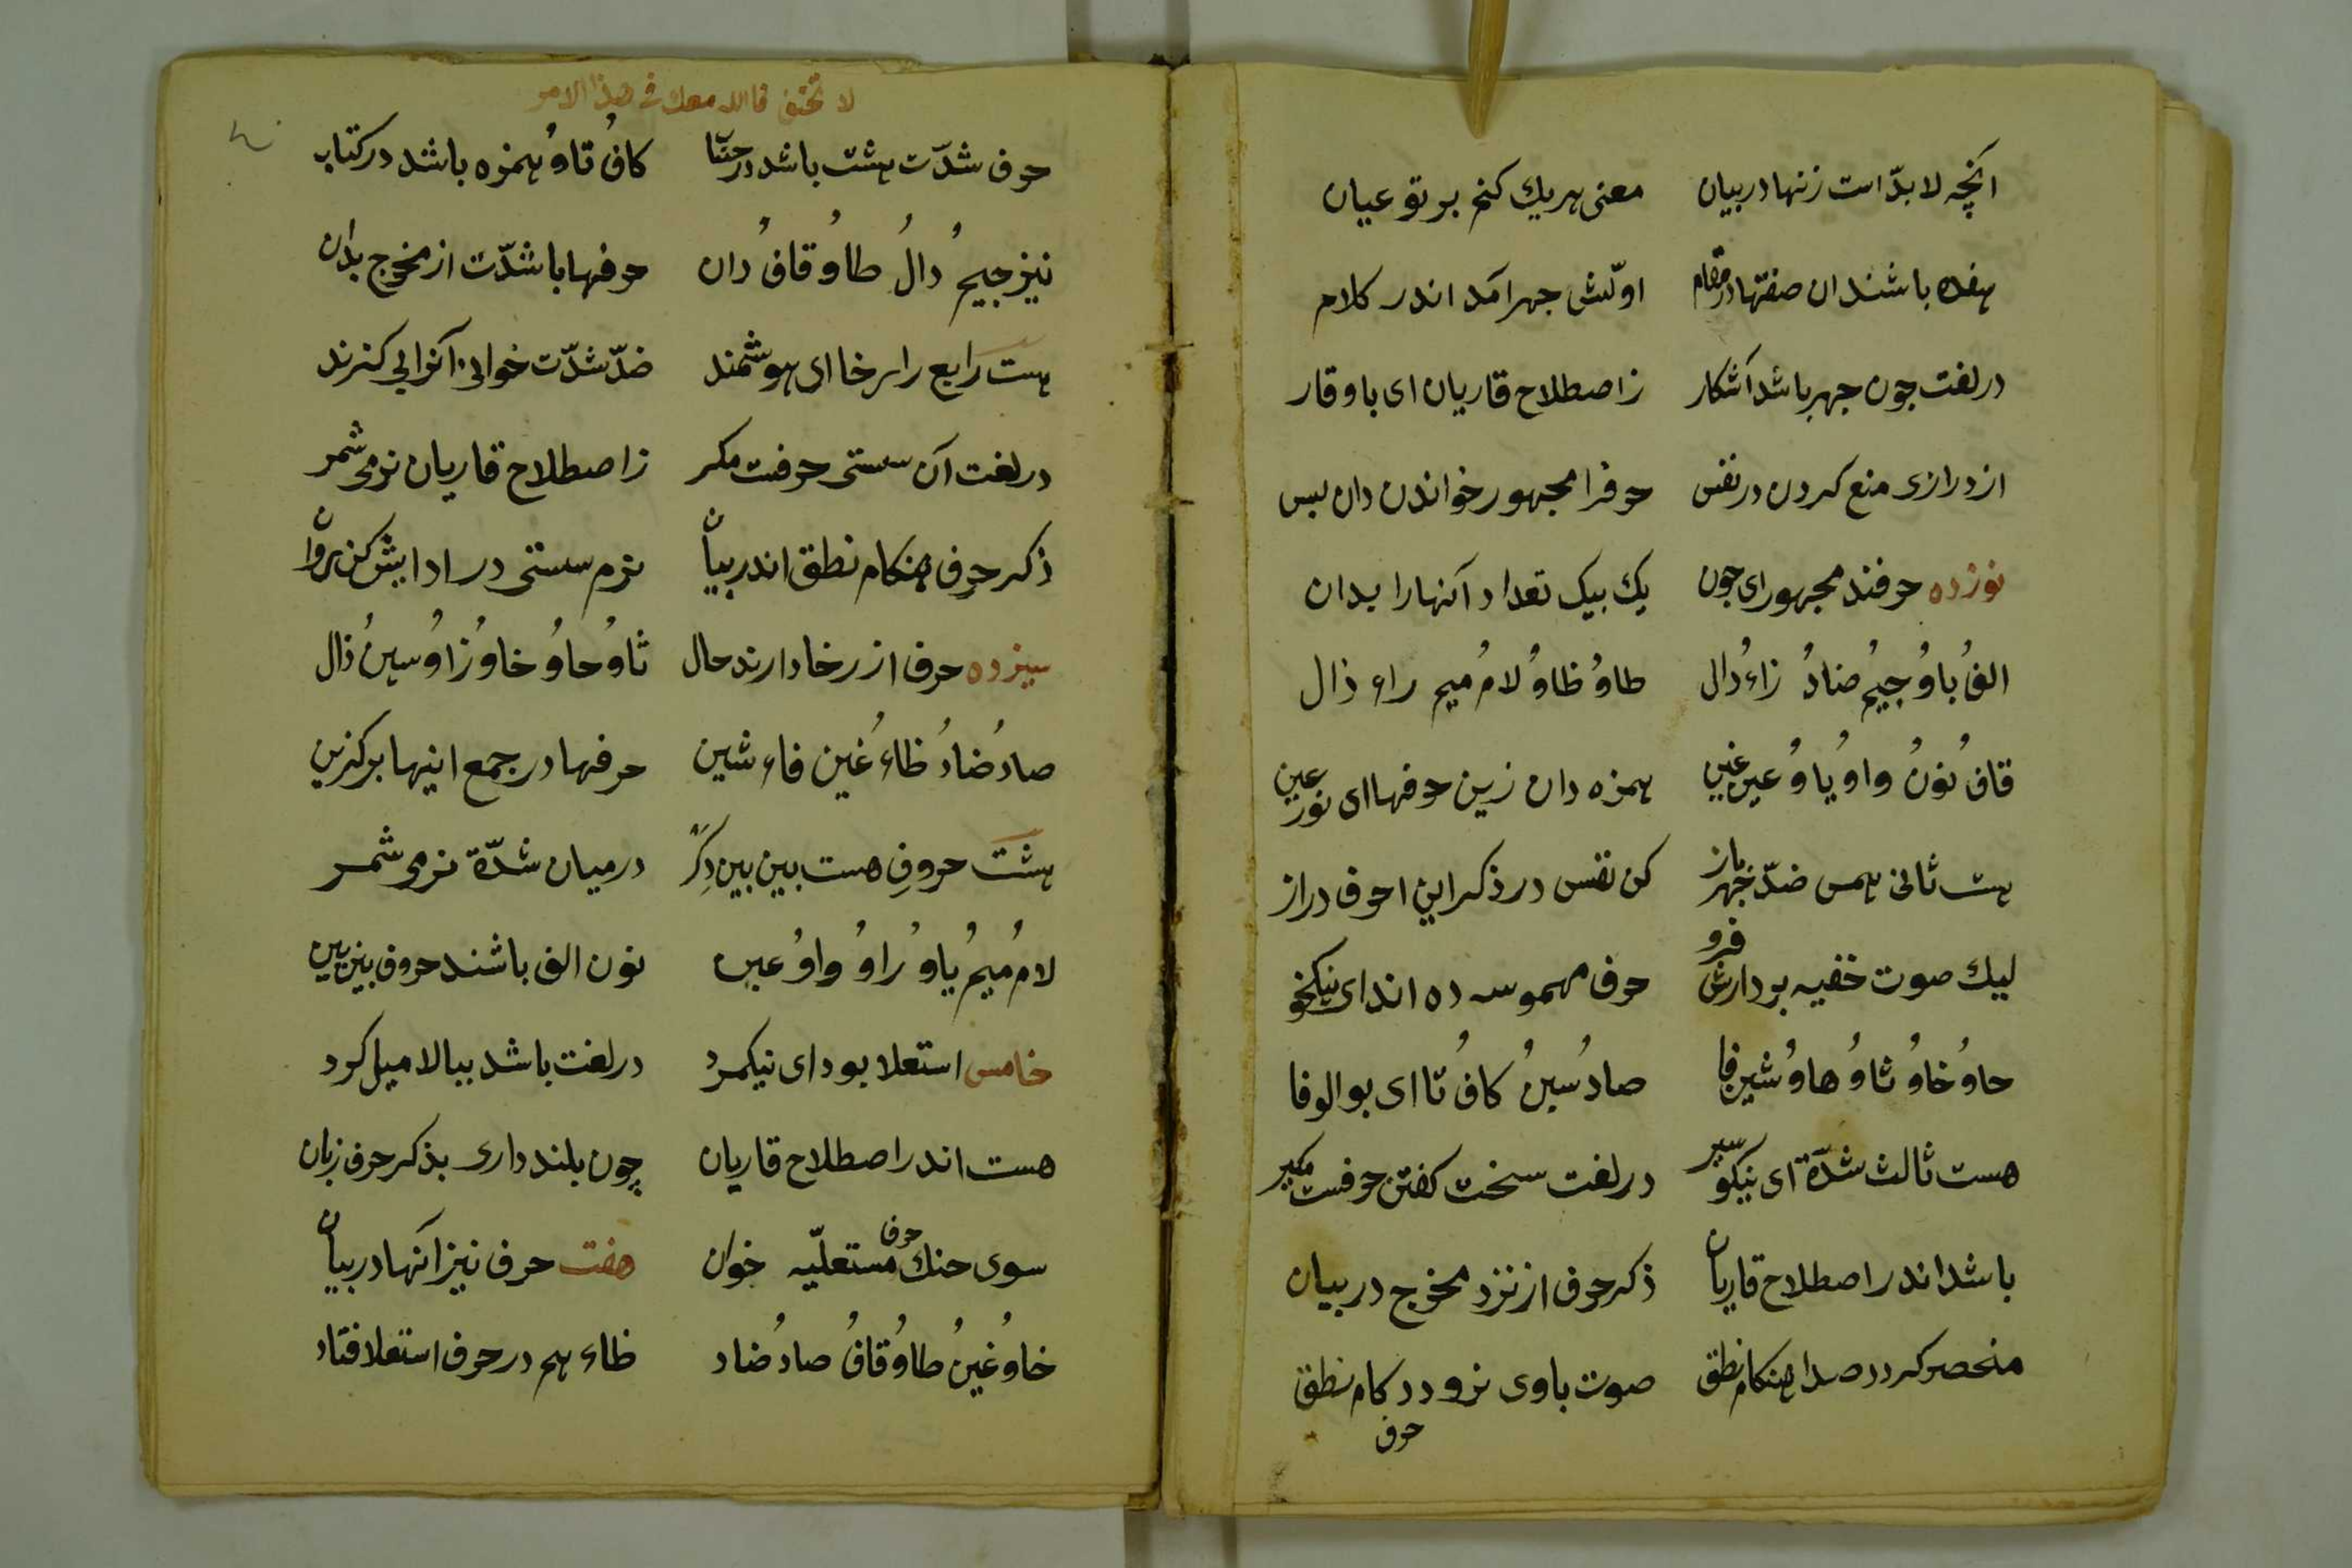 آنچه لا بدّ است زنها در بیان معنی هر یك كنم بر تو عیان
هفده باشند ان صفتها در مقام اوّلش جهر آمد اندر كلام
در لغت چون جهر باشد آشكار ز اصطلاح قاریان ای با وقار
از درازی منع كردن در نفس حرفرا مجهور خواندن دان بس
نوزده حرفند مجهور ای جون یك بیك تعداد آنهارا بدان
الفُ باوُ جیمُ ضادُ زاءُ دال طاوُ ظاوُ لامُ میم راء ذال
قافُ نونُ واو یاوُ عین غین همزه دان زین حرفها ای نور عین
هست ثانی همس ضدّ جهر باز كن نفس در ذكر این احرف دراز
لیك صوت خفیه بر دارش فرو حرف مهموسه ده اند ای نیكخو
حاوُ خاوُ ثاوُ هاوُ شین فا صادُ سینُ كافُ تا ای بو الوفا
هست ثالث شدّة ای نیكو سیر در لغت سخت كفتن حرفست مكیر
باشد اندر اصطلاح قاریان ذكر حرف از نزد مخرج در بیان
منحصر كردد صدا هنكام نطق صوت باوی نرود در كام نطق
حرف
لا تخف فالله معك فی هذا الامر
حرف شدّت هشت باشد در حسّا كافُ تاوُ همزه باشد در كتاب
نیز جیمُ دالُ طاوُ قافُ دان حرفها با شدّت از مخرج بدان
هست رابع را رخا ای هوشمند ضدّ شدّت خوانی آنرا بی كزند
در لغت آن سستی حرفست مكر ز اصطلاح قاریان نرمی شمر
ذكر حرف هنكام نطق اندر بیان نرم سستی در ادایش كن روان
سیزده حرف از رخا دارند حال ثاوُ حاوُ خاوُ زاوُ سینُ ذال
صادُ ضادُ ظاءُ غین فاء شین حرفها در جمع اینها بر كزین
هشت حروفِ هست بین بین دِكر در میان شدّة نرمی شمر
لامُ میمُ یاوُ راوُ واوُ عین نون الف باشند حروف بین بین
خامس استعلا بود ای نیكمرد در لغت باشد ببالا میل كرد
هست اندر اصطلاح قاریان چون بلند داری بذكر حرف زبان
سوی حنك حرف مستعلّیه خوان هفت حرف نیز آنها در بیان
خاوُ غینُ طاوُ قافُ صادُ ضاد ظاء هم در حرف استعلا فتاد